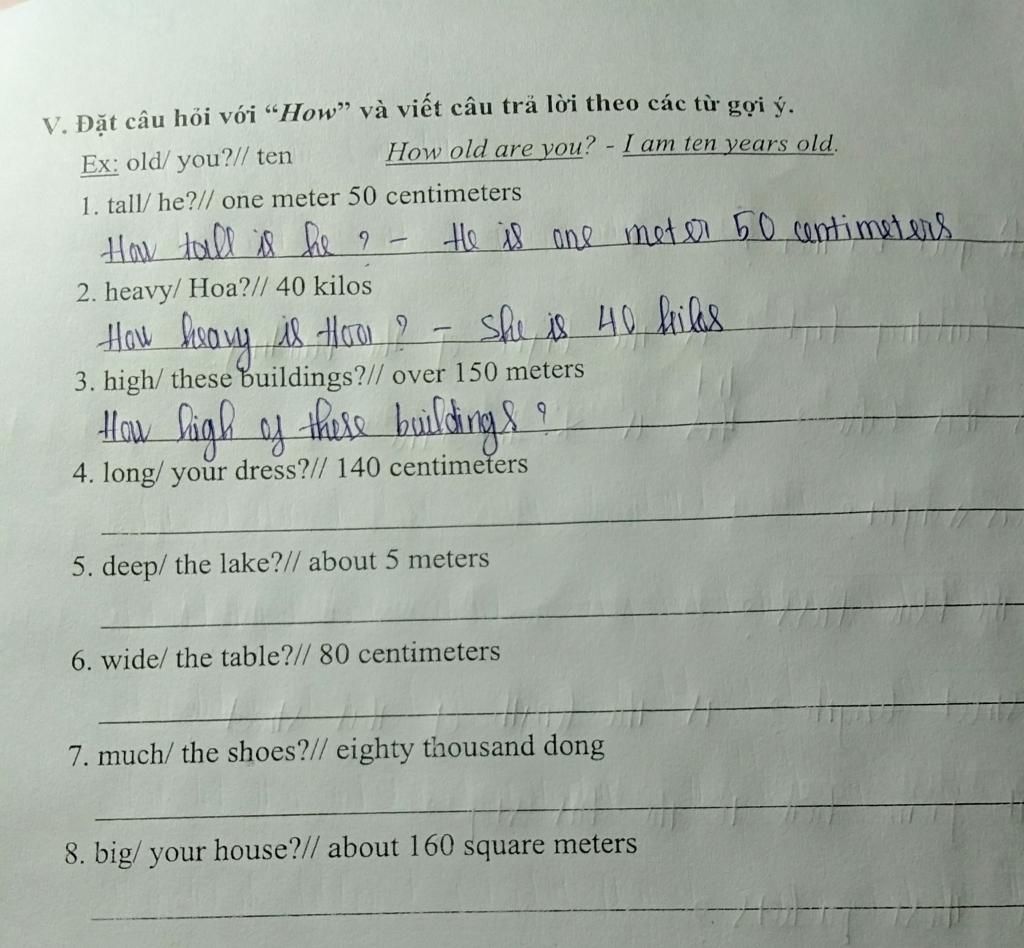 V. Đặt câu hỏi với “How” và viết câu trả lời theo các từ gợi ý.
Ex: old/ you?// ten How old are you? - I am ten years old.
1. tall/ he?// one meter 50 centimeters
How tall is he ? - He is one meter 50 centimeters
2. heavy/ Hoa?// 40 kilos
How heavy is Hoa ? - She is 40 kilos
3. high/ these buildings?// over 150 meters
How high of these buildings ?
4. long/ your dress?// 140 centimeters
5. deep/ the lake?// about 5 meters
6. wide/ the table?// 80 centimeters
7. much/ the shoes?// eighty thousand dong
8. big/ your house?// about 160 square meters